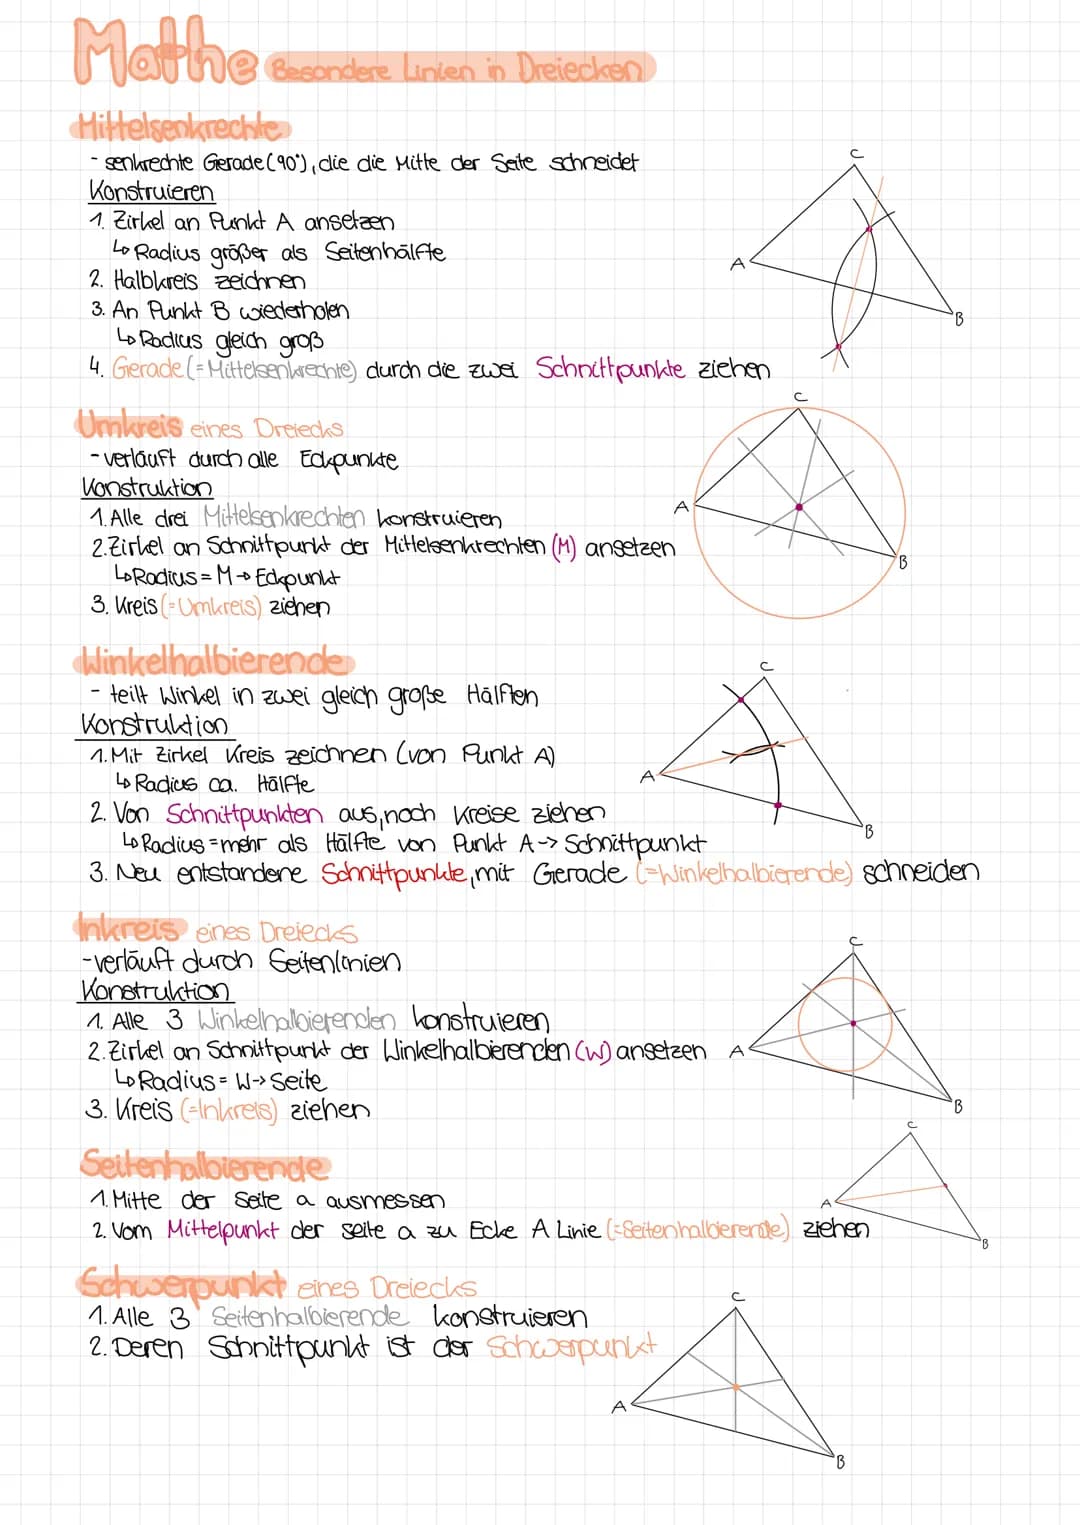 Mathe Besondere Linien in Dreiecken
Mittelsenkrechte
- senkrechte Gerade (90°), die die Mitte der Seite schneidet
Konstruieren
1. Zirkel an Punkt A ansetzen
↳ Radius größer als Seitenhälfte
2. Halbkreis zeichnen
3. An Punkt B wiederholen
↳ Radius gleich groß
4. Gerade (=Mittelsenkrechte) durch die zwei Schnittpunkte ziehen
C
A
B
Umkreis eines Dreiecks
- verläuft durch alle Eckpunkte
Konstruktion
1. Alle drei Mittelsenkrechten konstruieren
2. Zirkel an Schnittpunkt der Mittelsenkrechten (M) ansetzen
↳ Radius = M → Eckpunkt
3. Kreis (=Umkreis) ziehen
C
A
B
Winkelhalbierende
- teilt Winkel in zwei gleich große Hälften
Konstruktion
1. Mit Zirkel Kreis zeichnen (von Punkt A)
↳ Radius ca. Hälfte
2. Von Schnittpunkten aus, noch Kreise ziehen
↳ Radius = mehr als Hälfte von Punkt A -> Schnittpunkt
3. Neu entstandene Schnittpunkte, mit Gerade (=Winkelhalbierende) schneiden
C
A
B
Inkreis eines Dreiecks
- verläuft durch Seitenlinien
Konstruktion
1. Alle 3 Winkelhalbierenden konstruieren
2. Zirkel an Schnittpunkt der Winkelhalbierenden (W) ansetzen
↳ Radius = W -> Seite
3. Kreis (=Inkreis) ziehen
C
A
B
Seitenhalbierende
1. Mitte der Seite a ausmessen
2. Vom Mittelpunkt der seite a zu Ecke A Linie (=Seitenhalbierende) ziehen
C
A
B
Schwerpunkt eines Dreiecks
1. Alle 3 Seitenhalbierende konstruieren
2. Deren Schnittpunkt ist der Schwerpunkt
C
A
B